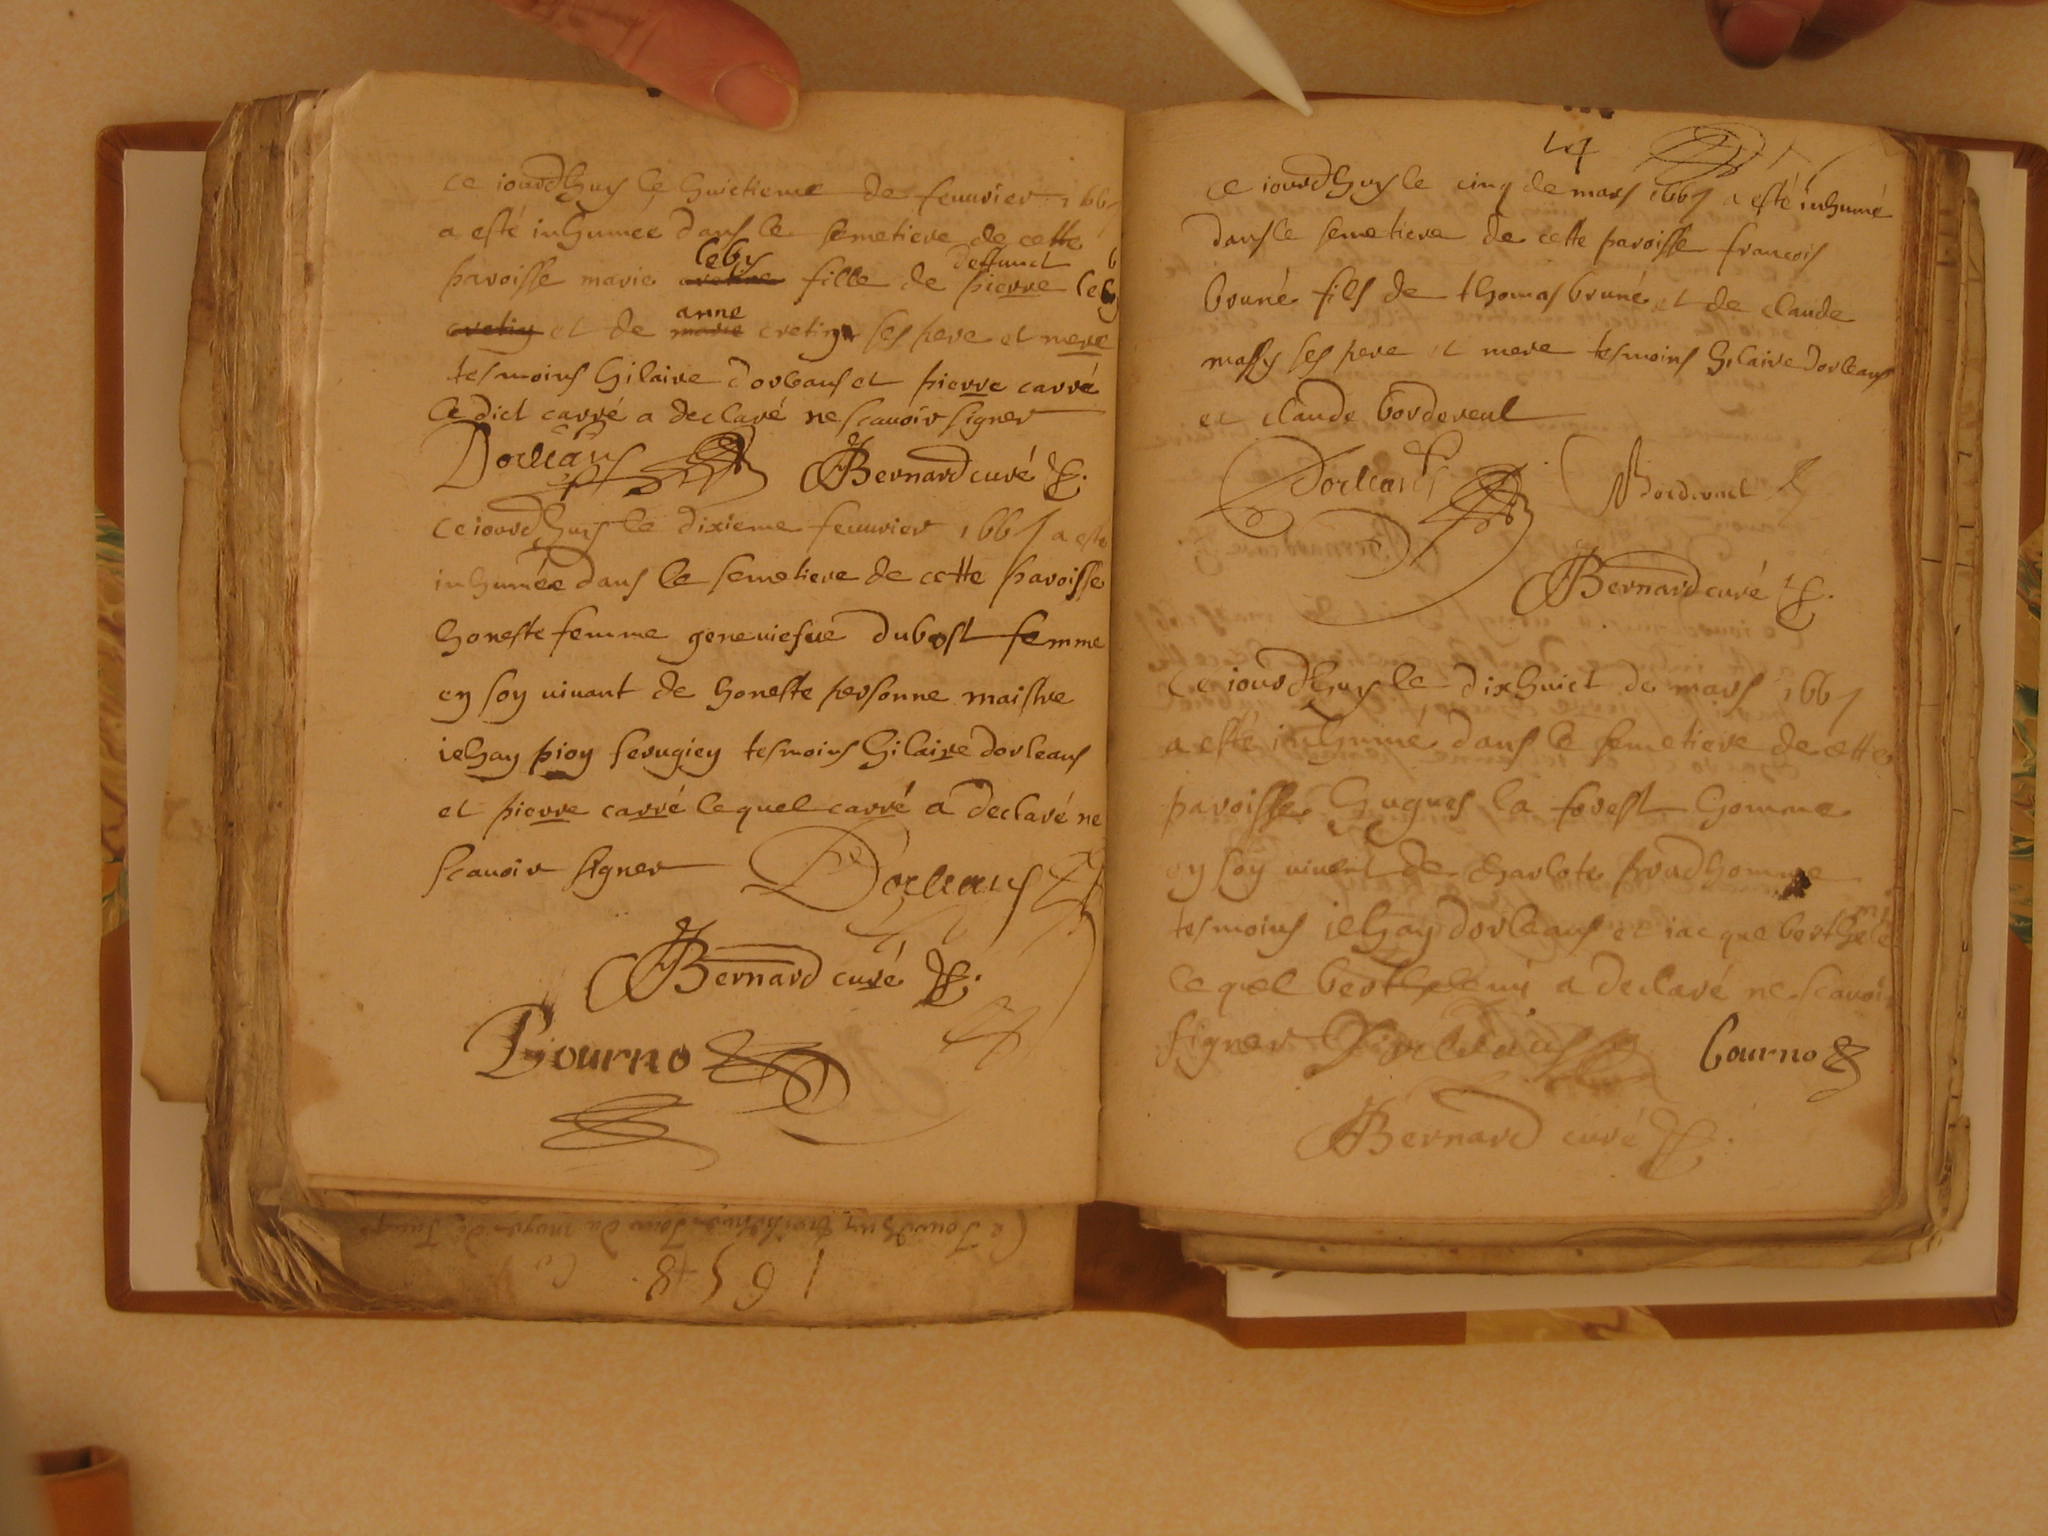 ce iourdhuy le huictieme de feuurier 1667
a esté inhumée dans le semetiere de cette
paroisse marie leby fille de deffunct pierre leby
cretin et de anne cretin ses pere et mere
tesmoins hilaire dorleans et pierre carré
le dict carré a declaré ne scauoir signer
Dorleans Bernard curé
ce iourdhuy le dixieme feuurier 1667 a esté
inhumée dans le semetiere de cette paroisse
honeste femme geneuiefue dubost femme
en son uiuant de honeste personne maistre
iehan pion tesmoins hilaire dorleans
et pierre carré lequel carré a declaré ne
scauoir signer Dorleans
Bernard curé
Bourno
1658
14
ce iourdhuy le cinq de mars 1667 a esté inhumé
dans le semetiere de cette paroisse francois
bruné fils de thomas bruné et de claude
massy ses pere et mere tesmoins hilaire dorleans
et claude bordereul
Dorleans Bordereul
Bernard curé
ce iourdhuy le dixhuict de mars 1667
a esté inhumé dans le semetiere de cette
paroisse hugues la forest homme
en son uiuent de charlote prudhomme
tesmoins iehan dorleans et iacque berthelemi
lequel berthelemi a declaré ne scauoir
signer Dorleans bourno
Bernard curé